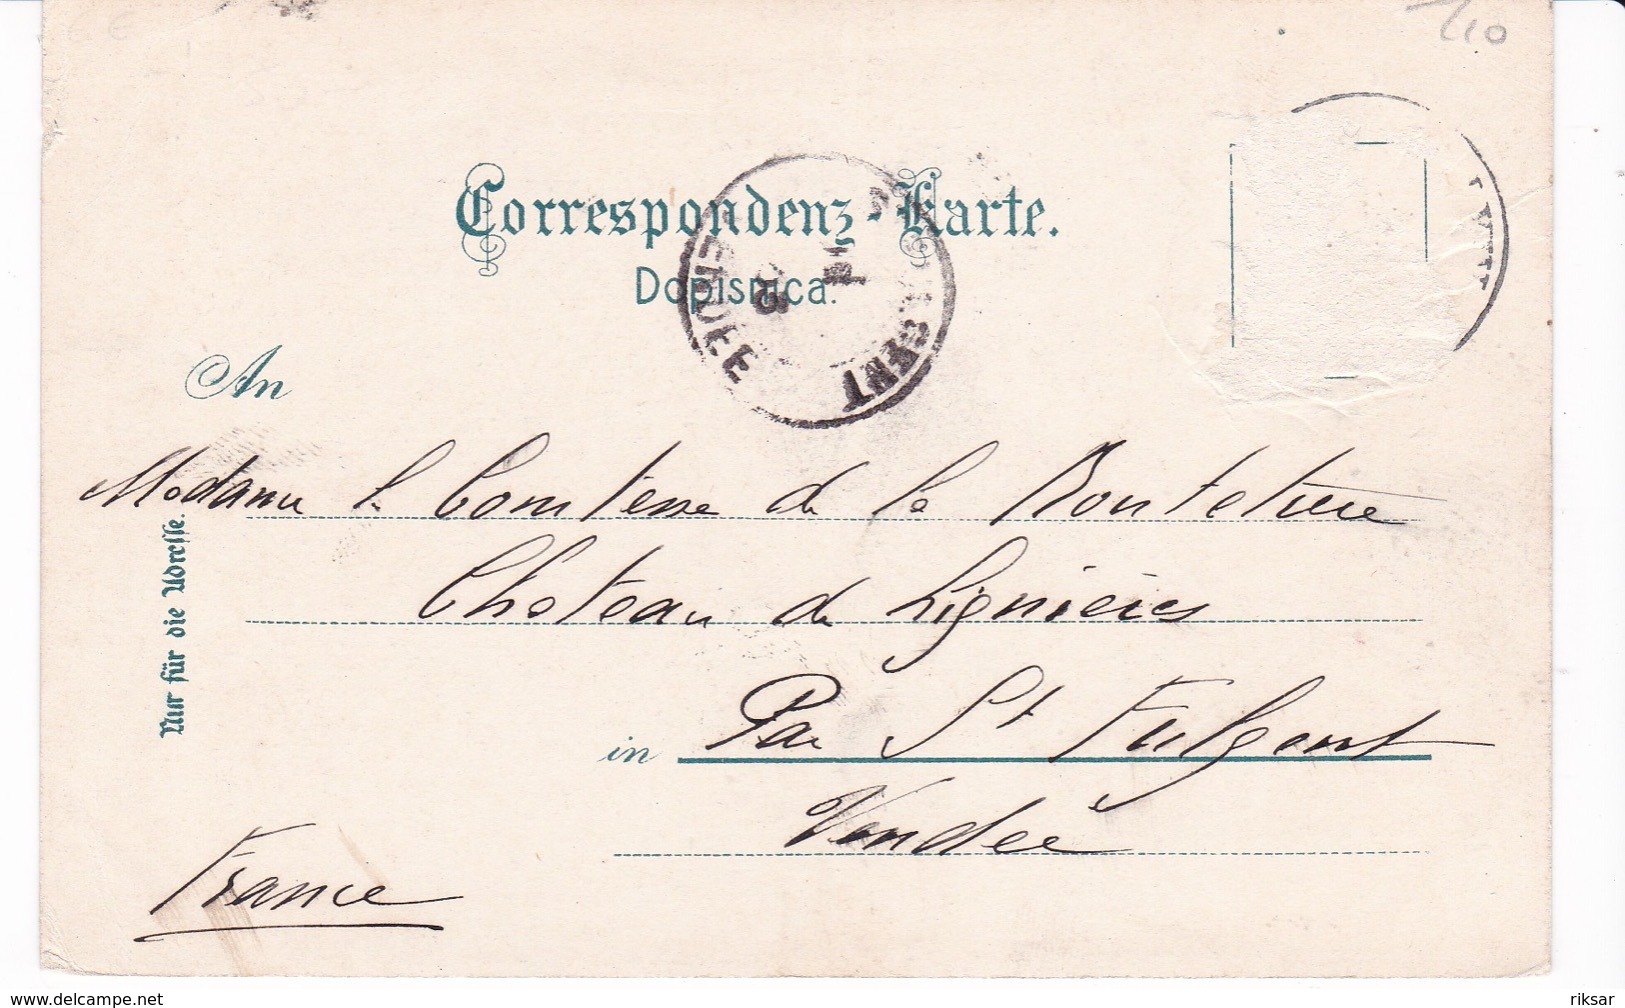 110
Correspondenz-Karte.
Dopisnica.
GENT
VENDEE
An
Madame la Comtesse de la Bouteliere
Chateau de Lignières
in Par St Fulgent
Vendée
France
Nur für die Adresse.
www.delcampe.net
riksar